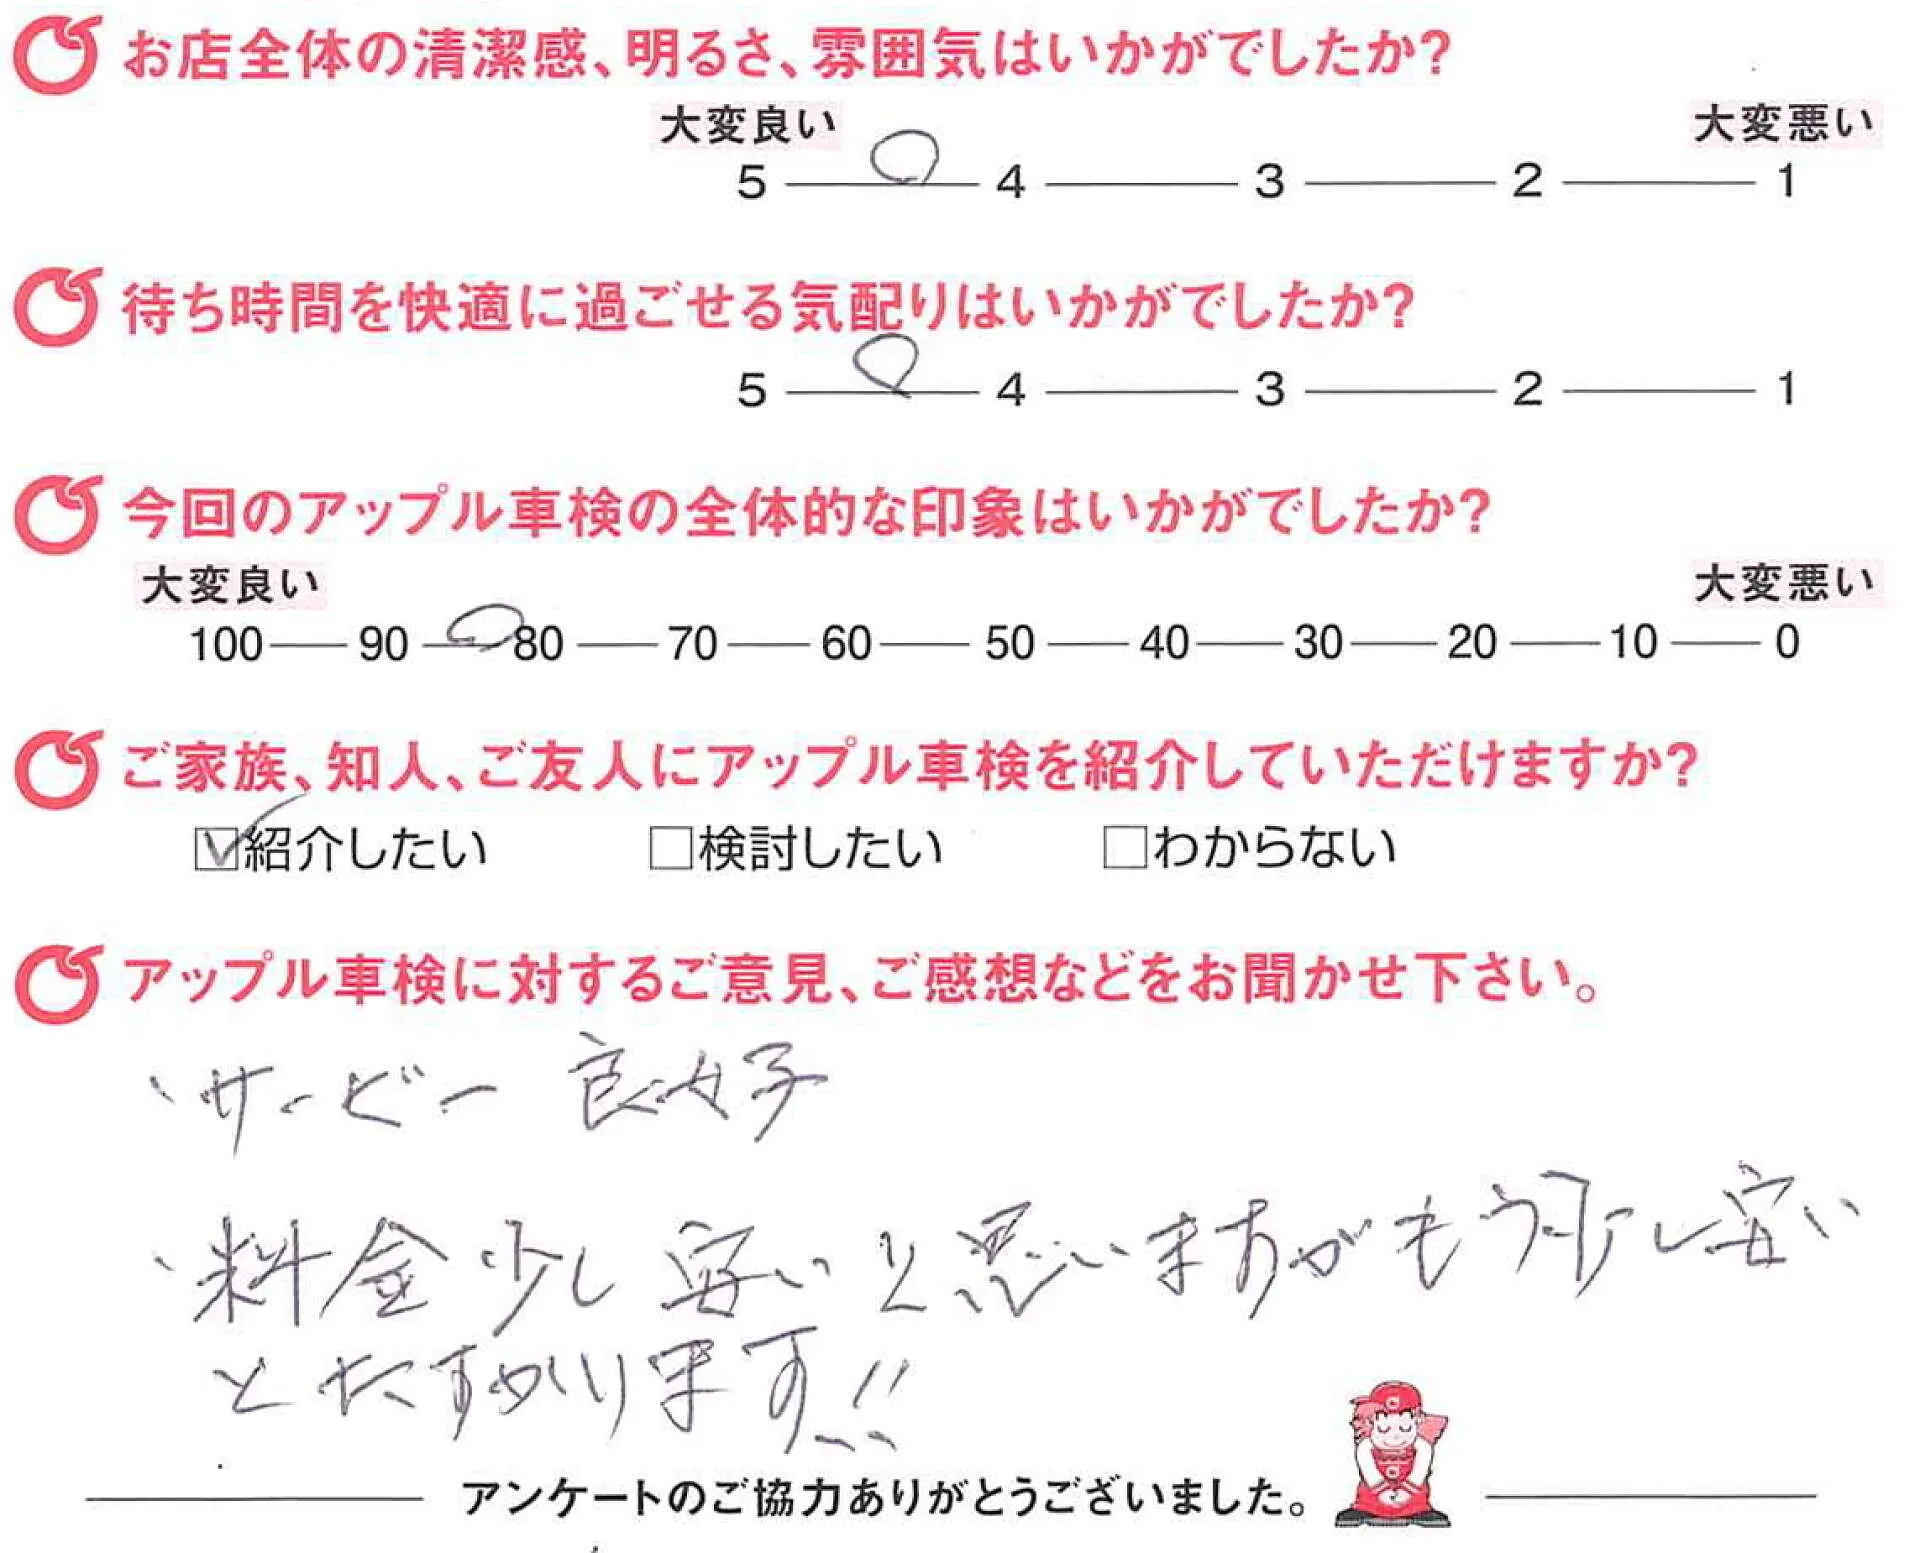 お店全体の清潔感、明るさ、雰囲気はいかがでしたか?
大変良い 大変悪い
5 4 3 2 1
待ち時間を快適に過ごせる気配りはいかがでしたか?
5 4 3 2 1
今回のアップル車検の全体的な印象はいかがでしたか?
大変良い 大変悪い
100 90 80 70 60 50 40 30 20 10 0
ご家族、知人、ご友人にアップル車検を紹介していただけますか?
☑紹介したい □検討したい □わからない
アップル車検に対するご意見、ご感想などをお聞かせ下さい。
、サービー 良
、料金少し安いと思いますがもう少し安い
とたすかります!!
アンケートのご協力ありがとうございました。